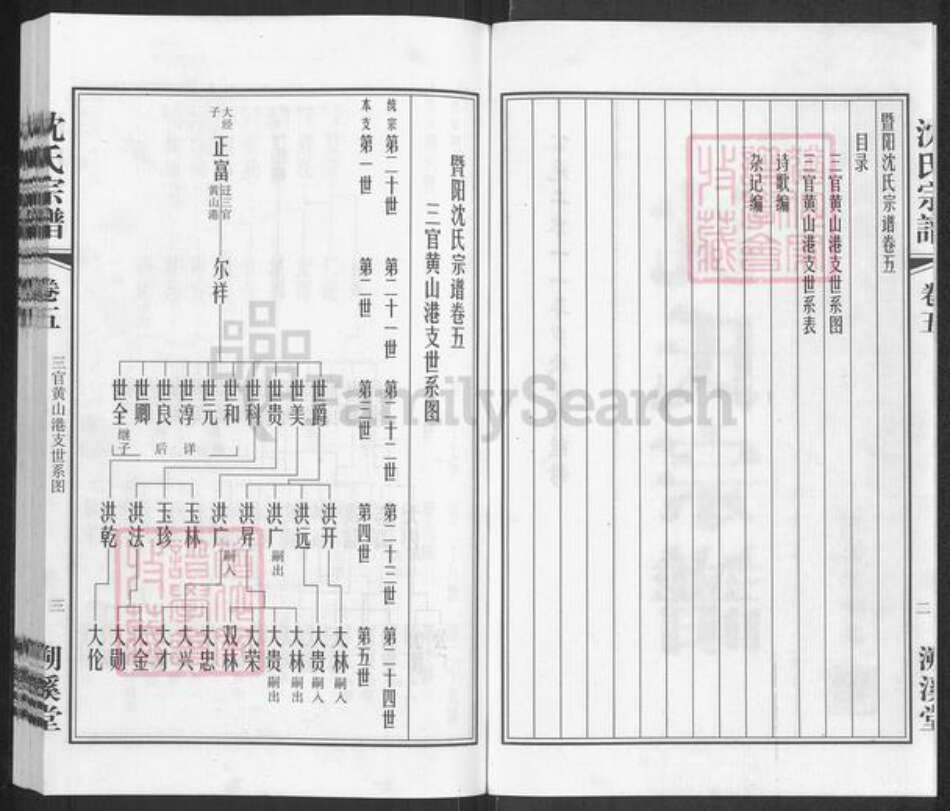 沈氏宗譜
卷五
二
溯溪堂
暨阳沈氏宗谱卷五
目录
三官黄山港支世系图
三官黄山港支世系表
诗歌编
杂记编
暨阳沈氏宗谱卷五
三官黄山港支世系图
统宗 第二十世 第二十一世 第二十二世 第二十三世 第二十四世
本支 第一世 第二世 第三世 第四世 第五世
大经子 正富 迁三官黄山港
尔祥
世爵 世美 世贵 世科 世和 世元 世淳 世良 世卿 世全
继子
后详
洪开 洪远 洪广 嗣出 洪昇 洪广 嗣入 玉林 玉珍 洪法 洪乾
大林 嗣入 大贵 嗣入 大林 嗣出 大贵 嗣出 大荣 双林 大忠 大兴 大才 大金 大勋 大伦
沈氏宗譜
卷五
三官黄山港支世系图
三
溯溪堂
FamilySearch